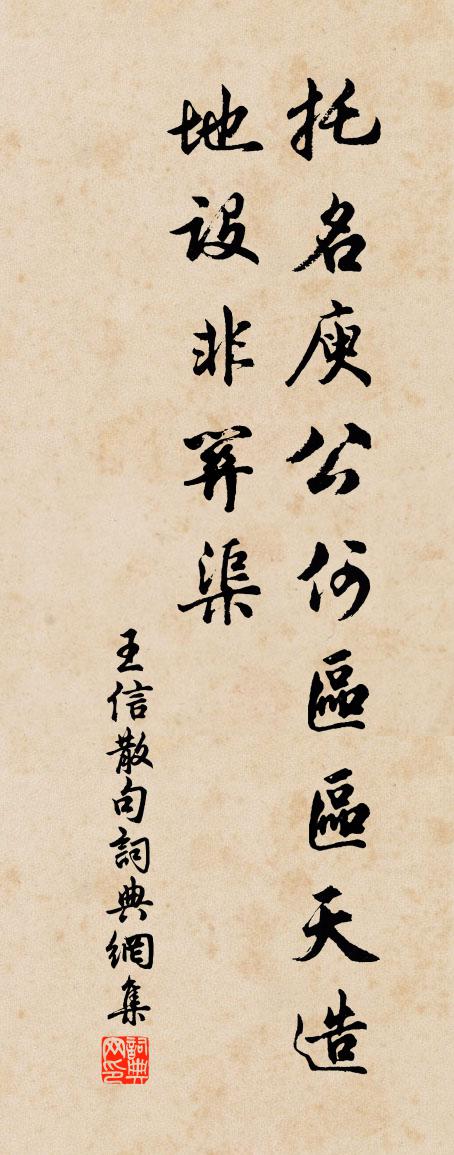 托名庾公何區區天造
地設非羿渠
王信散句詞典網集
詞典
网印